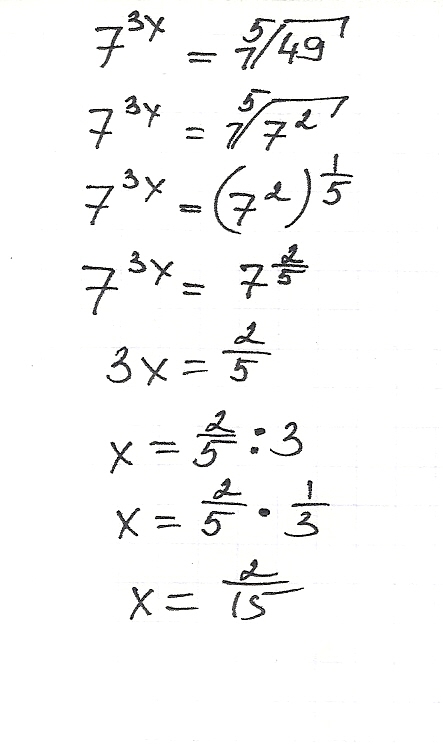 7^{3x} = \sqrt[5]{49}
7^{3x} = \sqrt[5]{7^2}
7^{3x} = (7^2)^{\frac{1}{5}}
7^{3x} = 7^{\frac{2}{5}}
3x = \frac{2}{5}
x = \frac{2}{5} : 3
x = \frac{2}{5} \cdot \frac{1}{3}
x = \frac{2}{15}